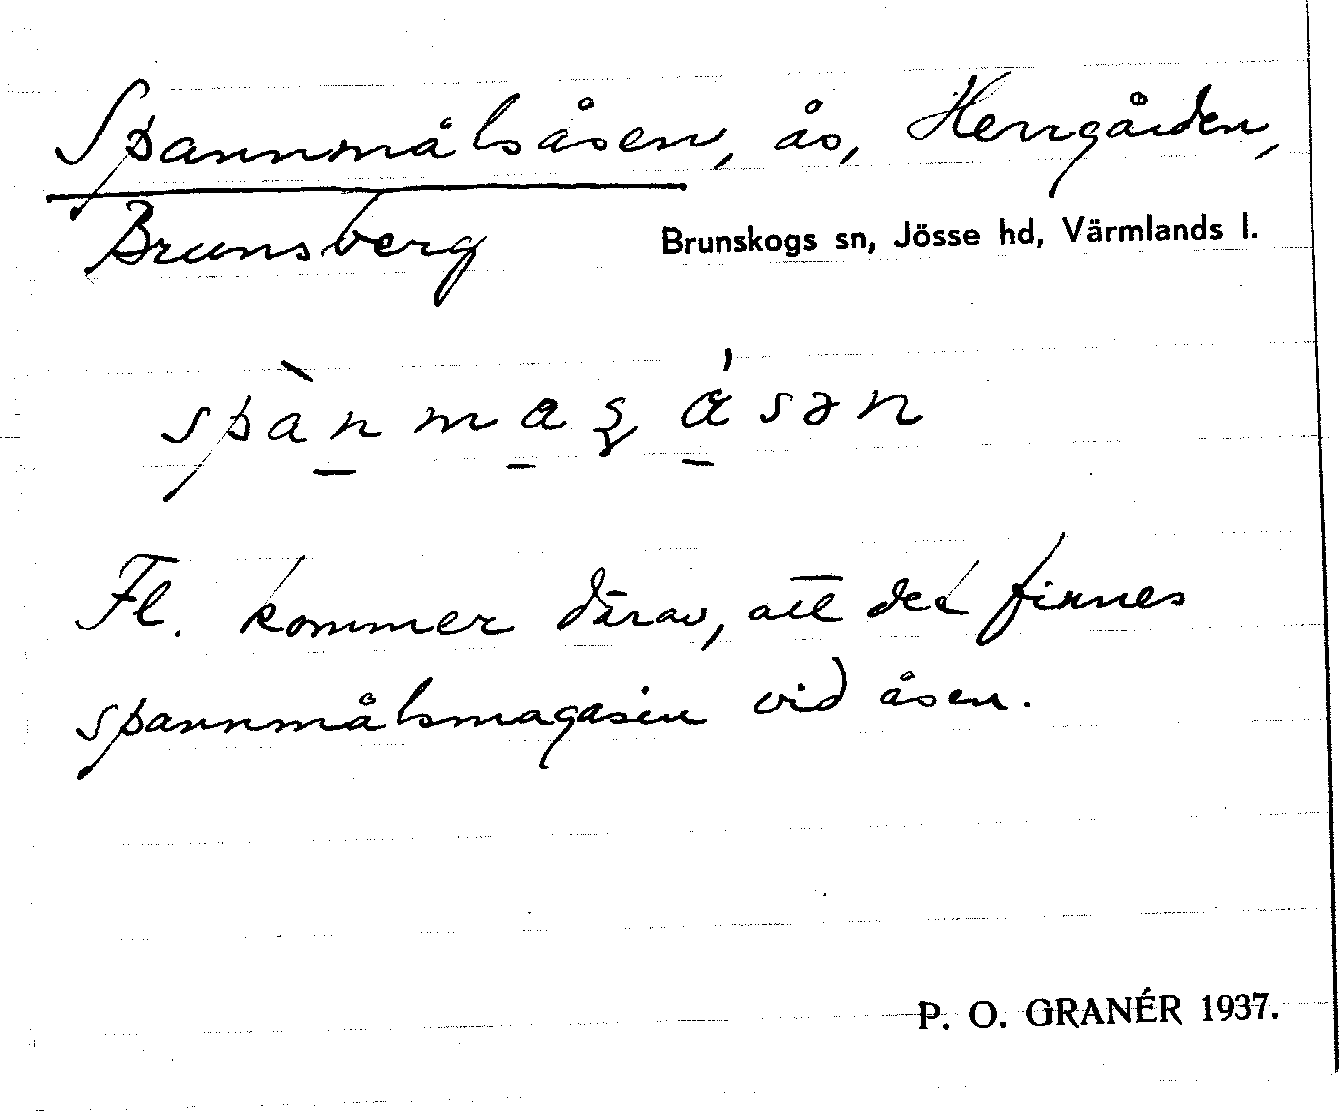 Spannmålsåsen, ås, Herrgården,
Brunsberg Brunskogs sn, Jösse hd, Värmlands l.
Fl. kommer därav, att det finnes
spannmålsmagasin vid åsen.
P. O. GRANÉR 1937.